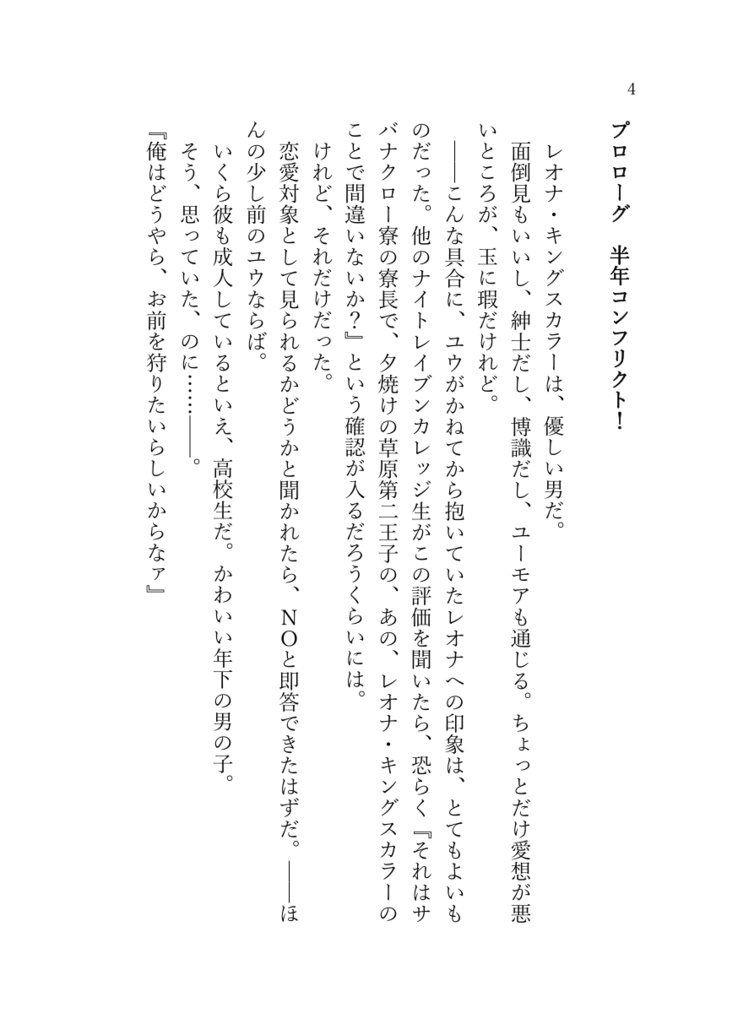 4
プロローグ　半年コンフリクト！
レオナ・キングスカラーは、優しい男だ。
面倒見もいいし、紳士だし、博識だし、ユーモアも通じる。ちょっとだけ愛想が悪
いところが、玉に瑕だけれど。
――こんな具合に、ユウがかねてから抱いていたレオナへの印象は、とてもよいも
のだった。他のナイトレイブンカレッジ生がこの評価を聞いたら、恐らく『それはサ
バナクロー寮の寮長で、夕焼けの草原第二王子の、あの、レオナ・キングスカラーの
ことで間違いないか？』という確認が入るだろうくらいには。
けれど、それだけだった。
恋愛対象として見られるかどうかと聞かれたら、ＮＯと即答できたはずだ。――ほ
んの少し前のユウならば。
いくら彼も成人しているといえ、高校生だ。かわいい年下の男の子。
そう、思っていた、のに……――。
『俺はどうやら、お前を狩りたいらしいからなァ』